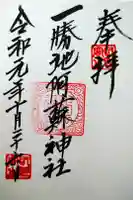 奉拝
一勝地阿蘇神社
令和元年十月二十